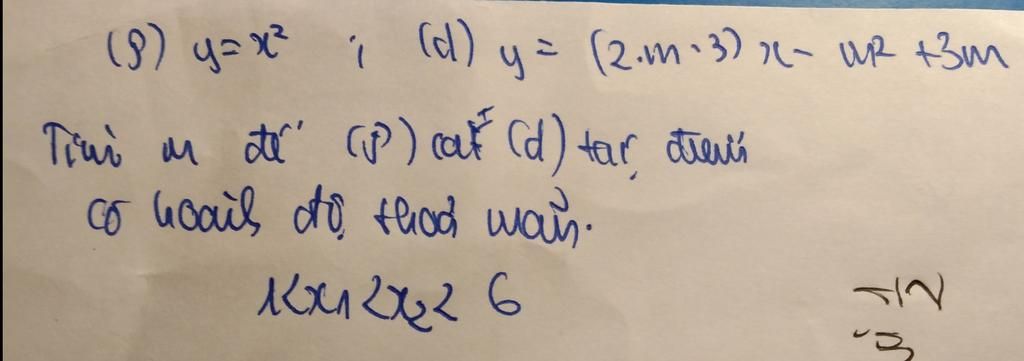 (P) y = x² ; (d) y = (2.m-3)x - m² + 3m
Tìm m để (P) cắt (d) tại điểm
có hoành độ thoả mãn.
1<x₁<x₂< 6